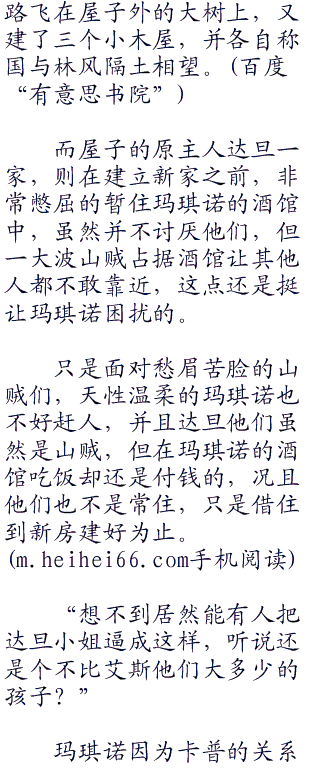 路飞在屋子外的大树上，又
建了三个小木屋，并各自称
国与林风隔土相望。(百度
“有意思书院”)
　　而屋子的原主人达旦一
家，则在建立新家之前，非
常憋屈的暂住玛琪诺的酒馆
中，虽然并不讨厌他们，但
一大波山贼占据酒馆让其他
人都不敢靠近，这点还是挺
让玛琪诺困扰的。
　　只是面对愁眉苦脸的山
贼们，天性温柔的玛琪诺也
不好赶人，并且达旦他们虽
然是山贼，但在玛琪诺的酒
馆吃饭却还是付钱的，况且
他们也不是常住，只是借住
到新房建好为止。
(m.heihei66.com手机阅读)
　　“想不到居然能有人把
达旦小姐逼成这样，听说还
是个不比艾斯他们大多少的
孩子？”
　　玛琪诺因为卡普的关系